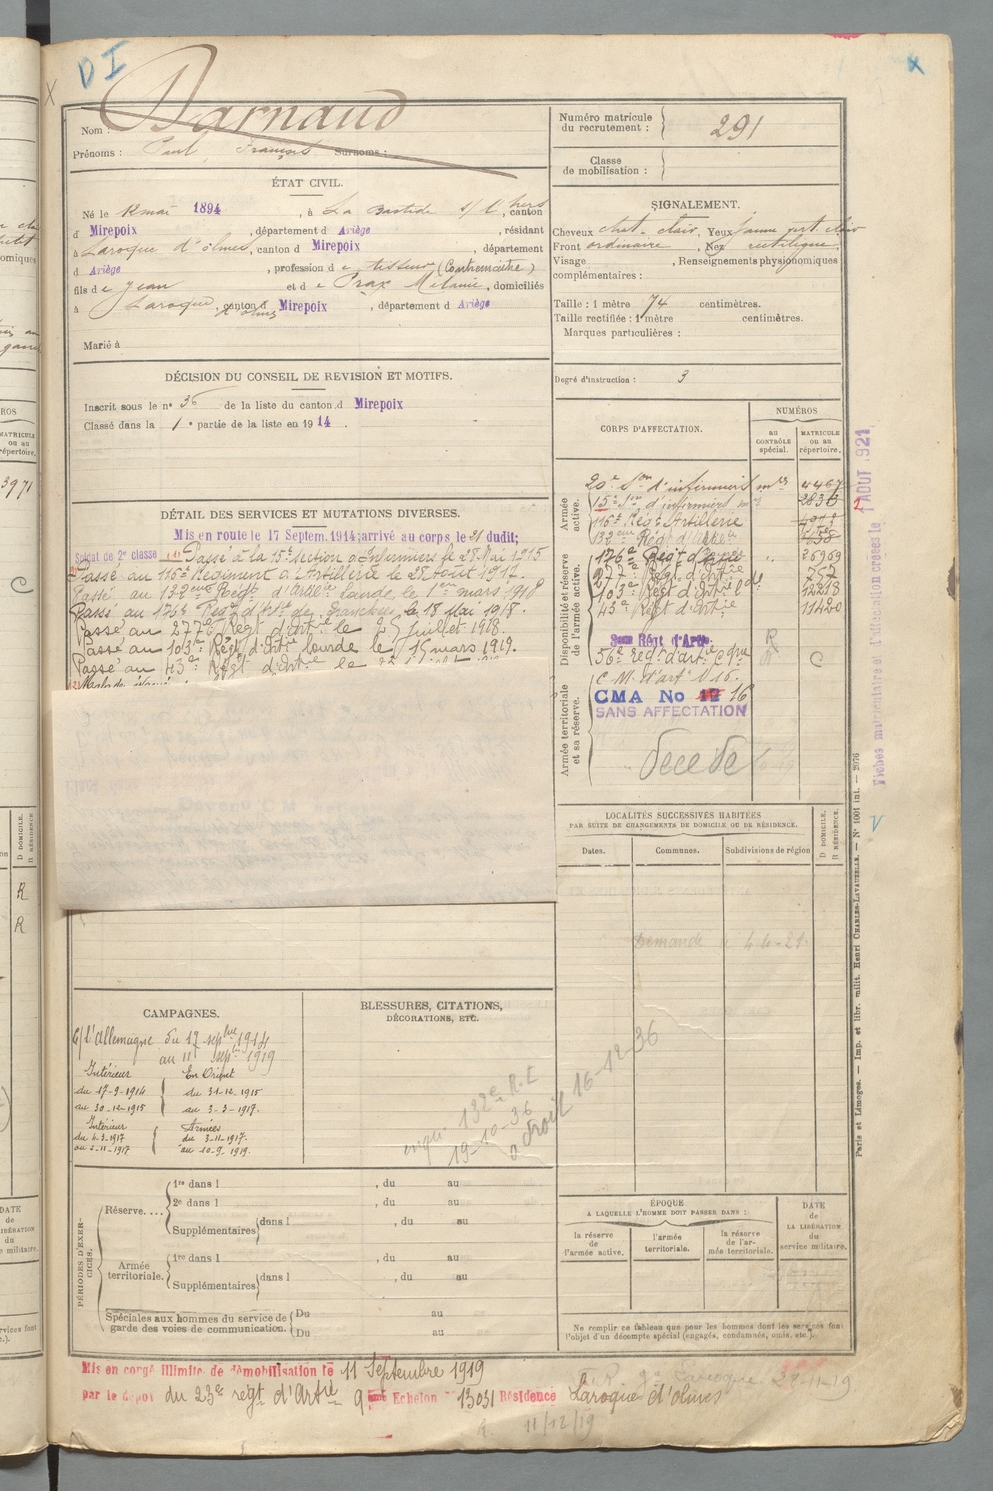 DI
Nom : Darnaud
Prénoms : Paul, François Surnoms :
Numéro matricule du recrutement : 291
Classe de mobilisation :
ÉTAT CIVIL.
Né le 12 mai 1894, à La Bastide s/ l'hers, canton
d Mirepoix, département d Ariège, résidant
à Laroque d'olmes, canton d Mirepoix, département
d Ariège, profession d e tisseur (Contremaître)
fils d e Jean et d e Prax Mélanie, domiciliés
à Laroque d'olmes, canton d Mirepoix, département d Ariège
Marié à
SIGNALEMENT.
Cheveux chat. clair, Yeux jaune vert clair
Front ordinaire, Nez rectiligne
Visage , Renseignements physionomiques
complémentaires :
Taille : 1 mètre 74 centimètres.
Taille rectifiée : 1 mètre centimètres.
Marques particulières :
Degré d'instruction : 3
DÉCISION DU CONSEIL DE REVISION ET MOTIFS.
Inscrit sous le nº 36 de la liste du canton d Mirepoix
Classé dans la 1e partie de la liste en 1914.
CORPS D'AFFECTATION.
NUMÉROS
au CONTRÔLE spécial.
MATRICULE ou au répertoire.
Armée active.
20e Son d'infirmiers 4467
15e Son d'infirmiers 2836
116e Régt Artillerie
132eme Régt d'Artie
Disponibilité et réserve de l'armée active.
176e Régt d'Artie 26969
277e Régt d'Artie 757
103e Régt d'Artie 12218
43e Régt d'Artie 11420
Régt d'Artie R
56e regt d'artie C
Armée territoriale et sa réserve.
C M. d'arti N 16.
CMA No 16
SANS AFFECTATION
Décédé
DÉTAIL DES SERVICES ET MUTATIONS DIVERSES.
Mis en route le 17 Septem. 1914; arrivé au corps le 21 dudit;
Soldat de 2e classe (1) Passé à la 15e Section d'Infirmiers le 28 Mai 1915
Passé au 116e Régiment d'Artillerie le 28 août 1917.
Passé au 132eme Régt d'Artie Lourde, le 1er mars 1918
Passé au 176e Régt d'Artie de Tranchée, le 18 Mai 1918.
Passé au 277e Régt d'Artie le 25 juillet 1918.
Passé au 103e Régt d'Artie lourde le 15 mars 1919.
Passé au 43e Régt d'Artie le
LOCALITÉS SUCCESSIVES HABITÉES
PAR SUITE DE CHANGEMENTS DE DOMICILE OU DE RÉSIDENCE.
Dates.
Communes.
Subdivisions de région
D DOMICILE.
R RÉSIDENCE.
Demande 4-4-21.
CAMPAGNES.
C/ l'Allemagne du 17 septbre 1914
au 11 septbre 1919
Intérieur
du 17-9-1914
au 30-12-1915
En Orient
du 31-12-1915
au 3-3-1917.
Intérieur
du 4-3-1917
au 2-11-1917
Armées
du 3-11-1917.
au 10-9-1919.
BLESSURES, CITATIONS,
DÉCORATIONS, ETC.
132e R.I
19-10-36
a droit 16-12-36
PÉRIODES D'EXERCICES.
Réserve....
1re dans l , du au
2e dans l , du au
Supplémentaires dans l , du au
Armée territoriale.
1re dans l , du au
Supplémentaires dans l , du au
Spéciales aux hommes du service de garde des voies de communication.
Du au
Du au
ÉPOQUE
A LAQUELLE L'HOMME DOIT PASSER DANS :
la réserve de l'armée active.
l'armée territoriale.
la réserve de l'armée territoriale.
DATE de LA LIBÉRATION du service militaire.
Ne remplir ce tableau que pour les hommes dont les services font
l'objet d'un décompte spécial (engagés, condamnés, omis, etc.).
Mis en congé illimité de démobilisation le 11 Septembre 1919
par le dépot du 23e regt d'Artie 9eme Echelon Nº 13031 Résidence Laroque d'olmes
Laroque 28-11-19
11/12/19
Fiches matriculaire et d'affectation créées le 1 AOUT 1921
Paris et Limoges. — Imp. et libr. milit. Henri CHARLES-LAVAUZELLE. — Nº 1001 ini. — 2076